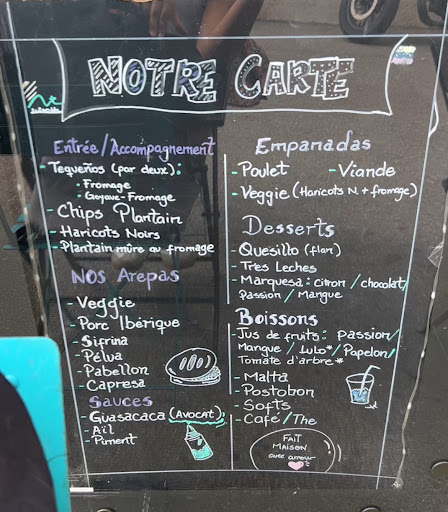 NOTRE CARTE
Entrée/Accompagnement
- Tequeños (par deux):
: Fromage
: Goyave-Fromage
- Chips Plantain
- Haricots Noirs
- Plantain mûre au fromage
NOS Arepas
- Veggie
- Porc Ibérique
- Sifrina
- Pélua
- Pabellon
- Capresa
Sauces
- Guasacaca (AVOCAT)
- Ail
- Piment
Empanadas
- Poulet - Viande
- Veggie (Haricots N. + fromage)
Desserts
- Quesillo (flan)
- Tres Leches
- Marquesa: citron / chocolat/
Passion / Mangue
Boissons
- Jus de fruits: Passion/
Mangue / Lulo* / Papelon/
Tomate d'arbre*
- Malta
- Postobon
- Softs
- Café/The
FAIT
MAISON
avec amour